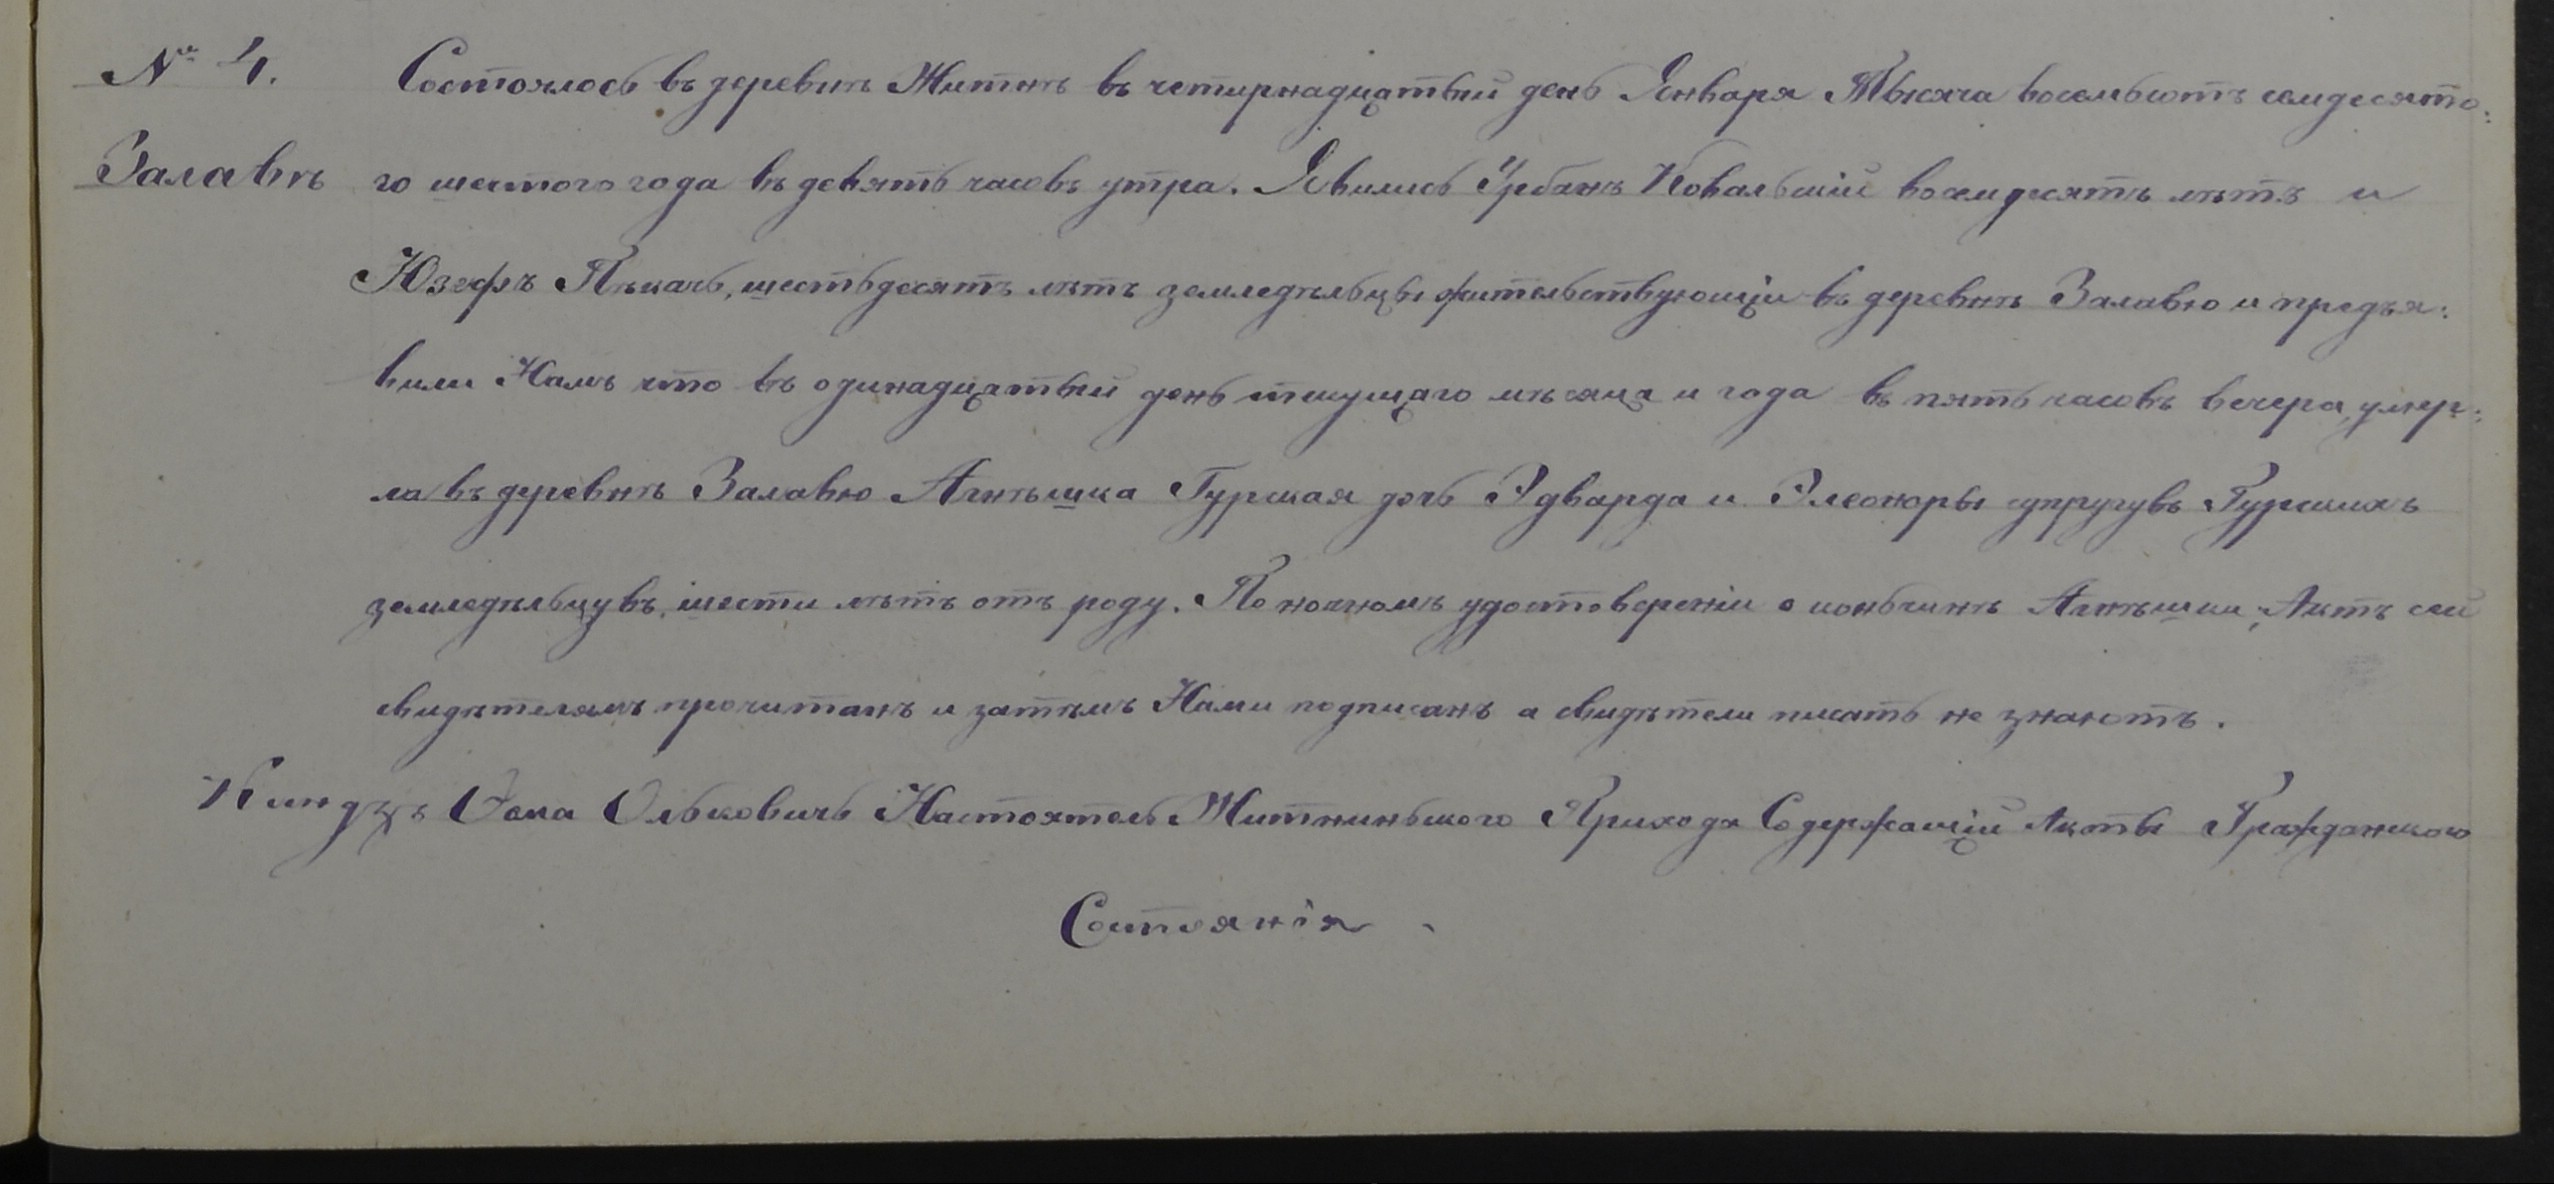 № 4. Состоялось въ деревнѣ Житнѣ въ четырнадцатый день Января Тысяча восемьсотъ семдесято:
Залавѣ го шестого года въ девять часовъ утра. Явились Урбанъ Ковальскій восемдесятъ лѣтъ и
Юзефъ Пѣкачь, шестьдесятъ лѣтъ земледѣльцы жительствующіи въ деревнѣ Залавю и предъя:
вили Намъ что въ одинадцатый день текущаго мѣсяца и года въ пять часовъ вечера, умер:
ла въ деревнѣ Залавю Агнѣшка Гурская дочь Эдварда и Элеоноры супругувъ Гурскихъ
земледѣльцувъ, шести лѣтъ отъ роду. По ночномъ удостовереніи о коньчинѣ Агнѣшки, Актъ сей
свидѣтелямъ прочитанъ и затѣмъ Нами подписанъ а свидѣтели писать не знаютъ.
Киндзъ Ольковичь Настоятель Житниньского Прихода Содержащій Акты Гражданского
Состоянія